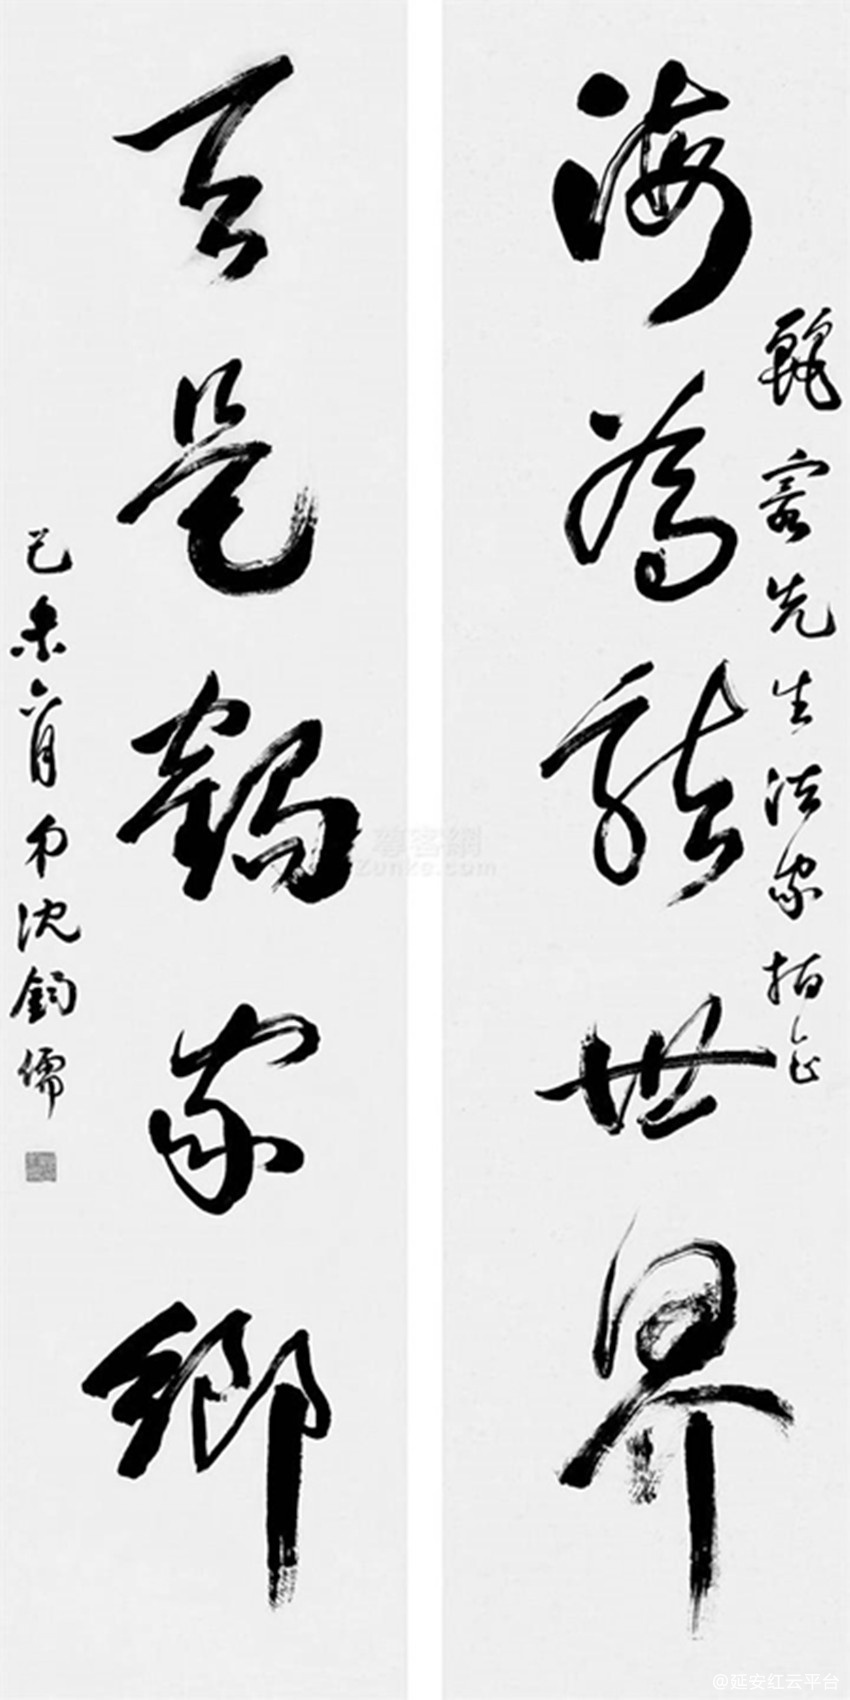 海为龙世界
先生法家指正
天是鹤家乡
己未六月 弟沈钧儒
尊客網
Zunke.com
@延安红云平台